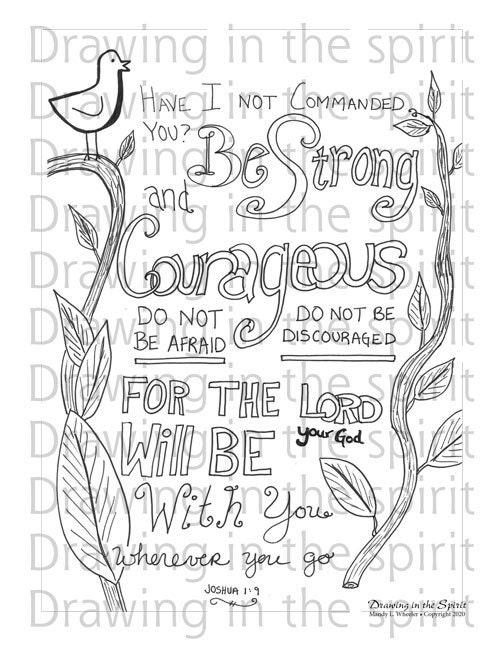 Drawing in the spirit
Drawing in the spirit
Drawing in the spirit
Drawing in the spirit
Drawing in the spirit
Drawing in the spirit
Drawing in the spirit
Drawing in the spirit
Drawing in the spirit
Drawing in the spirit
Drawing in the spirit
HAVE I NOT COMMANDED
YOU? Be Strong
and
Courageous
DO NOT BE AFRAID
DO NOT BE DISCOURAGED
FOR THE LORD
your God
Will BE
With You
wherever you go
JOSHUA 1:9
Drawing in the Spirit
Mandy E. Wheeler • Copyright 2020